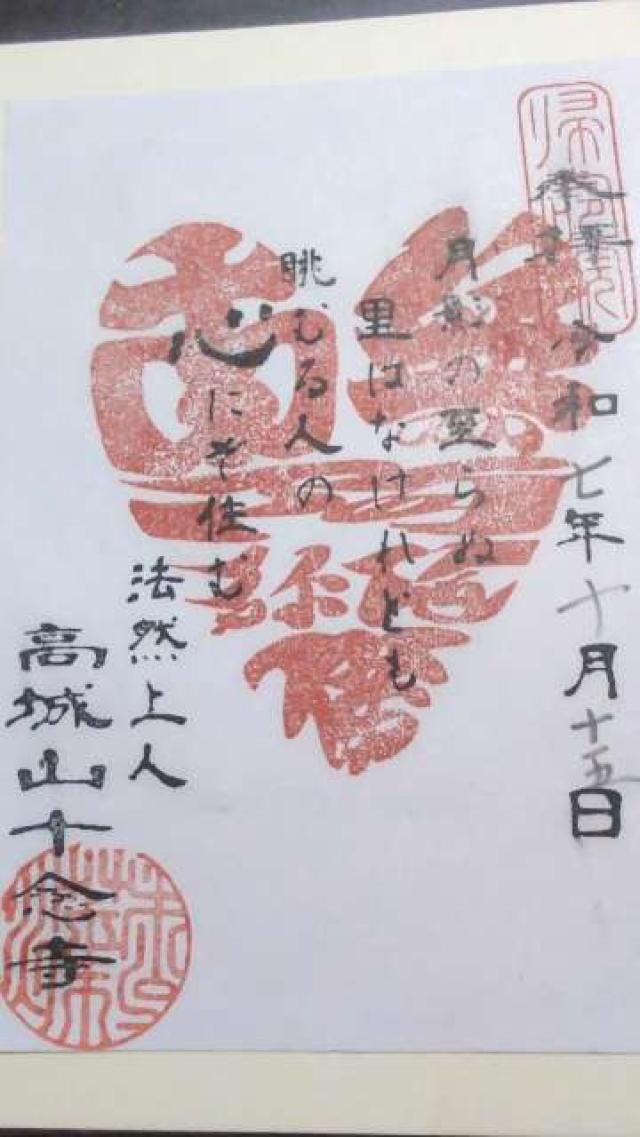 奉拝 令和七年十月十五日
月影の至らぬ
里はなけれども
眺むる人の
心にぞ住む
法然上人
高城山十念寺
南無
阿弥陀
佛